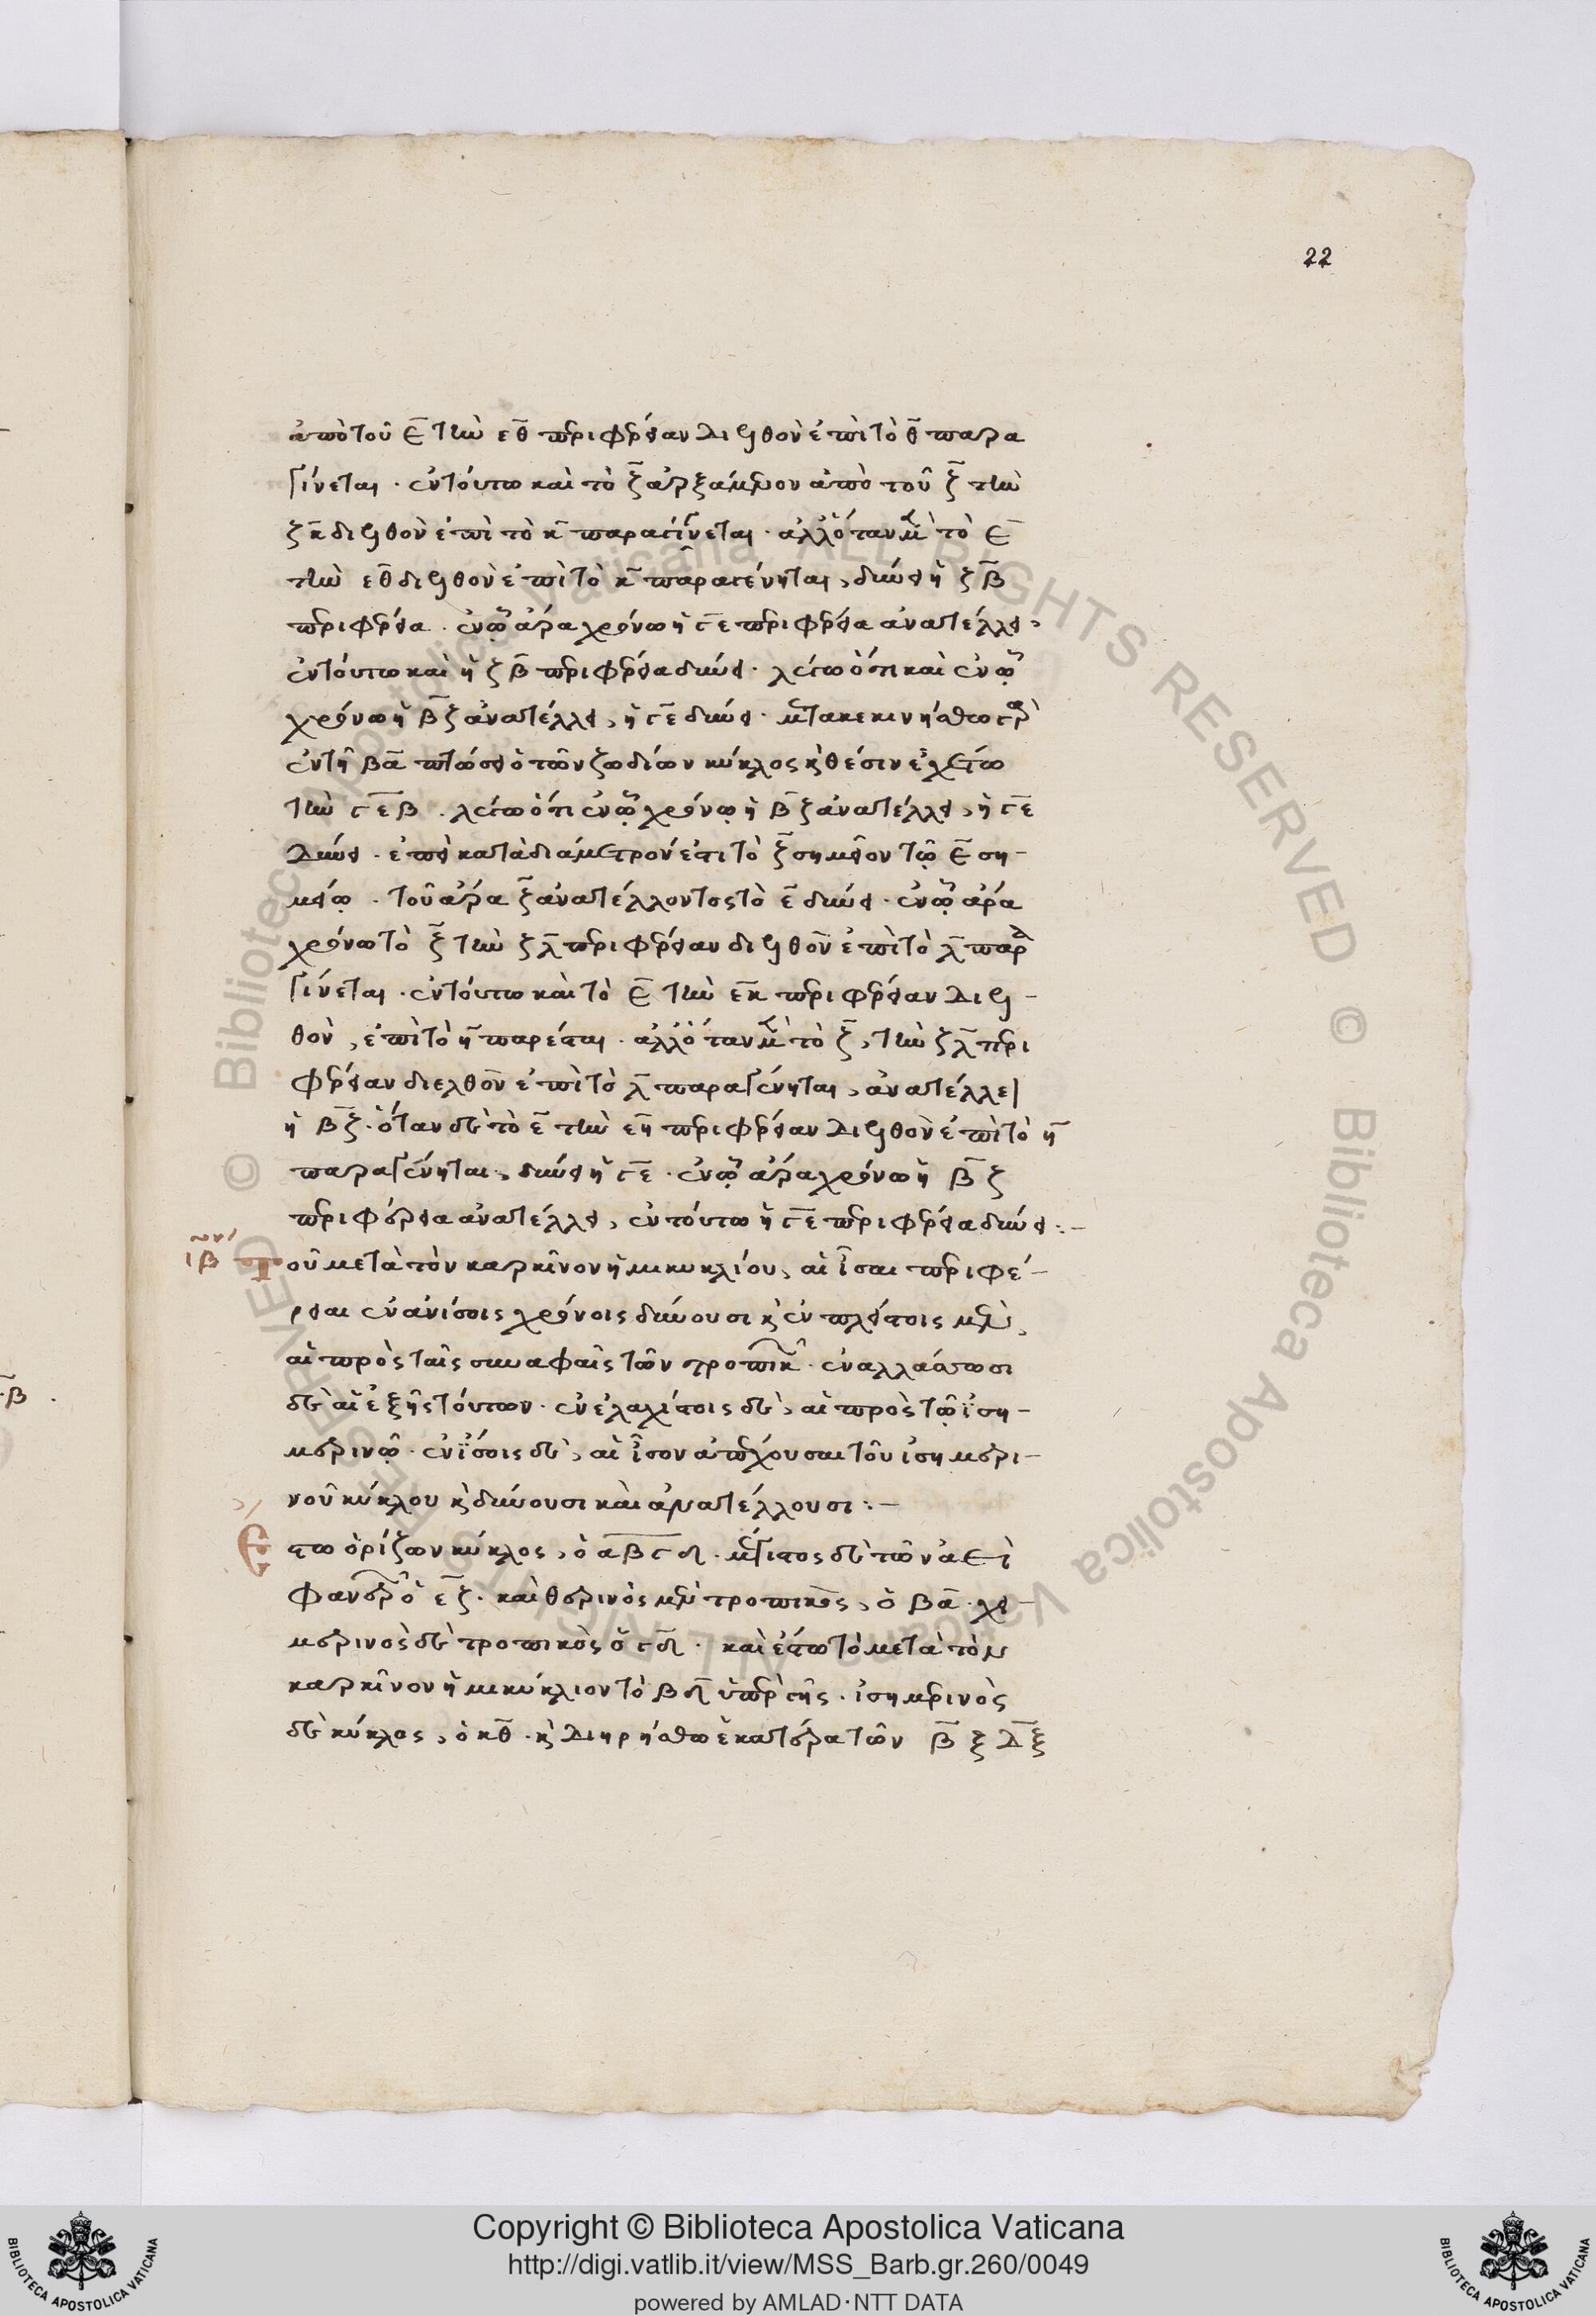 22
ἀπὸ τοῦ ε̅ τὴν εθ̅ περιφέρειαν διελθὸν ἐπὶ τὸ θ̅ παρα
γίνεται · ἐν τούτω καὶ τὸ ζ̅ ἀρξάμενον ἀπὸ τοῦ ζ̅ τὴν
ζκ̅ διελθὸν ἐπὶ τὸ κ̅ παραγίνεται · ἀλλ' ὅταν μὲν τὸ ε̅
τὴν εθ̅ διελθὸν ἐπὶ τὸ κ̅ παραγένηται, δύνει ἡ ζβ̅
περιφέρεια · ἐν ᾧ ἄρα χρόνω ἡ γε̅ περιφέρεια ἀνατέλλει,
ἐν τούτω καὶ ἡ ζβ̅ περιφέρεια δύνει · λέγω ὅτι καὶ ἐν ᾧ
χρόνω ἡ β̅ζ ἀνατέλλει, ἡ γε̅ δύνει · μετακεκινήσθω γὰρ
ἐν τῇ βα̅ πτώσει ὁ τῶν ζωδίων κύκλος κ θέσιν ἐχέτω
τὴν γε̅β · λέγω ὅτι ἐν ᾧ χρόνῳ ἡ β̅ζ ἀνατέλλει, ἡ γε̅
δύνει · ἐπεὶ κατὰ διάμετρον ἐστι τὸ ζ̅ σημεῖον τῷ ε̅ ση-
μείῳ · τοῦ ἄρα ζ̅ ἀνατέλλοντος τὸ ε̅ δύνει · ἐν ᾧ ἄρα
χρόνω τὸ ζ̅ τὴν ζλ̅ περιφέρειαν διελθὸν ἐπὶ τὸ λ̅ παρα
γίνεται · ἐν τούτω καὶ τὸ ε̅ τὴν εκ̅ περιφέρειαν διελ-
θὸν, ἐπὶ τὸ η̅ παρέσται · ἀλλ' ὅταν μὲν τὸ ζ̅, τὴν ζλ̅ περι
φέρειαν διελθὸν ἐπὶ τὸ λ̅ παραγένηται, ἀνατέλλει
ἡ β̅ζ · ὅταν δὲ τὸ ε̅ τὴν εη̅ περιφέρειαν διελθὸν ἐπὶ τὸ η̅
παραγένηται, δύνει ἡ γε̅ · ἐν ᾧ ἄρα χρόνω ἡ β̅ζ
περιφέρεια ἀνατέλλει, ἐν τούτω ἡ γε̅ περιφέρεια δύνει :-
ιβ Τοῦ μετὰ τὸν καρκῖνον ἡμικυκλίου, αἱ ἶσαι περιφέ-
ρειαι ἐν ἀνίσοις χρόνοις δύνουσι κ ἐν πλείστοις μὲν,
αἱ πρὸς ταῖς συναφαῖς τῶν τροπικῶν · ἐν ἐλάσσοσι
δὲ αἱ ἑξῆς τούτων · ἐν ἐλαχίστοις δὲ, αἱ πρὸς τῷ ἰση-
μερινῷ · ἐν ἴσοις δὲ, αἱ ἶσον ἀπέχουσαι τοῦ ἰσημερι-
νοῦ κύκλου κ δύνουσι καὶ ἀνατέλλουσι :-
Ἔστω ὁρίζων κύκλος, ὁ αβγδ̅ · μέγιστος δὲ τῶν ἀεὶ
φανερῶν ὁ ε̅ζ · καὶ θερινὸς μὲν τροπικὸς, ὁ βα̅ · χει-
μερινὸς δὲ τροπικὸς ὁ γδ̅ · καὶ ἔστω τὸ μετὰ τὸν
καρκῖνον ἡμικύκλιον τὸ βδ̅ ὑπὲρ γῆς · ἰσημερινὸς
δὲ κύκλος, ὁ κθ̅ · κ διῃρήσθω ἑκατέρα τῶν β̅ξ δ̅ξ
β
Copyright © Biblioteca Apostolica Vaticana
http://digi.vatlib.it/view/MSS_Barb.gr.260/0049
powered by AMLAD·NTT DATA
BIBLIOTECA APOSTOLICA VATICANA
BIBLIOTECA APOSTOLICA VATICANA
© Biblioteca Apostolica Vaticana ALL RIGHTS RESERVED © Biblioteca Apostolica Vaticana ALL RIGHTS RESERVED